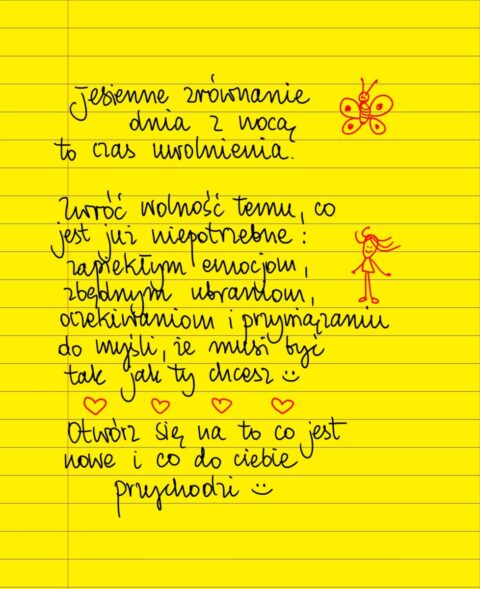 Jesienne zrównanie
dnia z nocą
to czas uwolnienia.
Zwróć wolność temu, co
jest już niepotrzebne:
zapiekłym emocjom,
zbędnym ubraniom,
oczekiwaniom i przywiązaniu
do myśli, że musi być
tak jak ty chcesz :)
Otwórz się na to co jest
nowe i co do ciebie
przychodzi :)